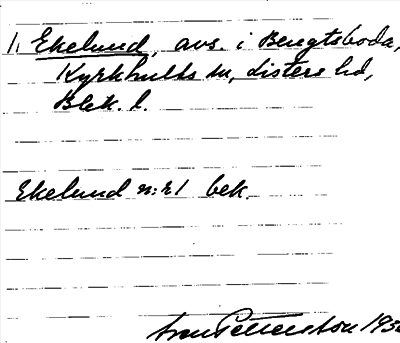 1. Ekelund, avs. i Bengtsboda,
Kyrkhults sn, Listers hd,
Blek. l.
Ekelund n:r 1 bek.
Sven Petersson 193